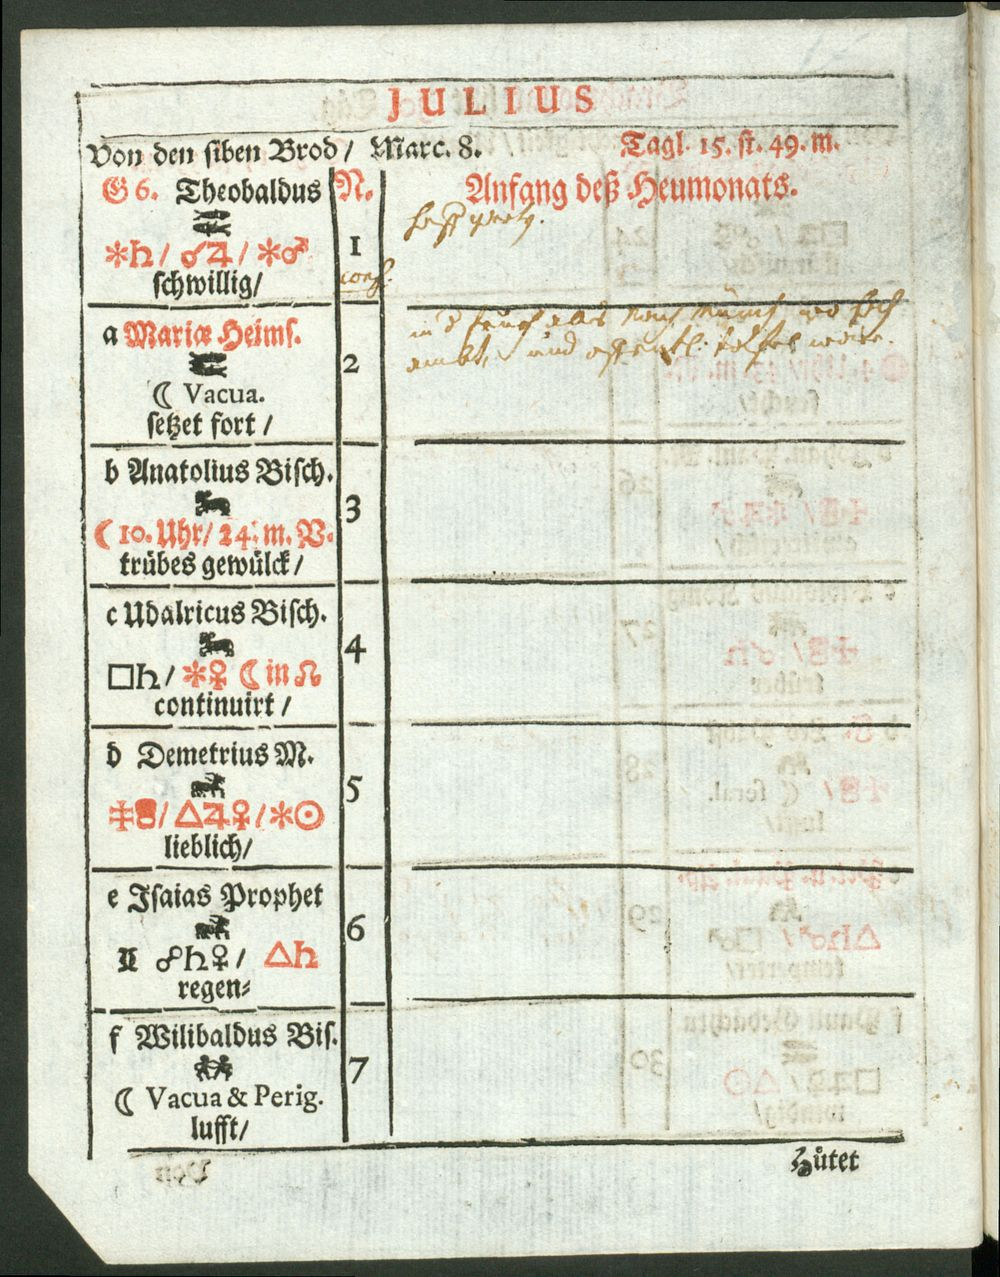 JULIUS
Von den siben Brod / Marc. 8. Tagl. 15. st. 49. m.
G 6. Theobaldus N. Anfang deß Heumonats.
✻♄ / ☌♃ / ✻♂ 1
schwillig /
a Mariæ Heims.
2
☾ Vacua.
setzet fort /
und
b Anatolius Bisch.
3
☾ 10. Uhr / 24. m. V.
trübes gewülck /
c Udalricus Bisch.
4
□♄ / ✻♀ ☾ in ☊
continuirt /
d Demetrius M.
5
△♃♀ / ✻☉
lieblich /
e Isaias Prophet
6
☍♄♀ / △♄
regen⸗
f Wilibaldus Bis.
7
☾ Vacua & Perig.
lufft /
Hůtet